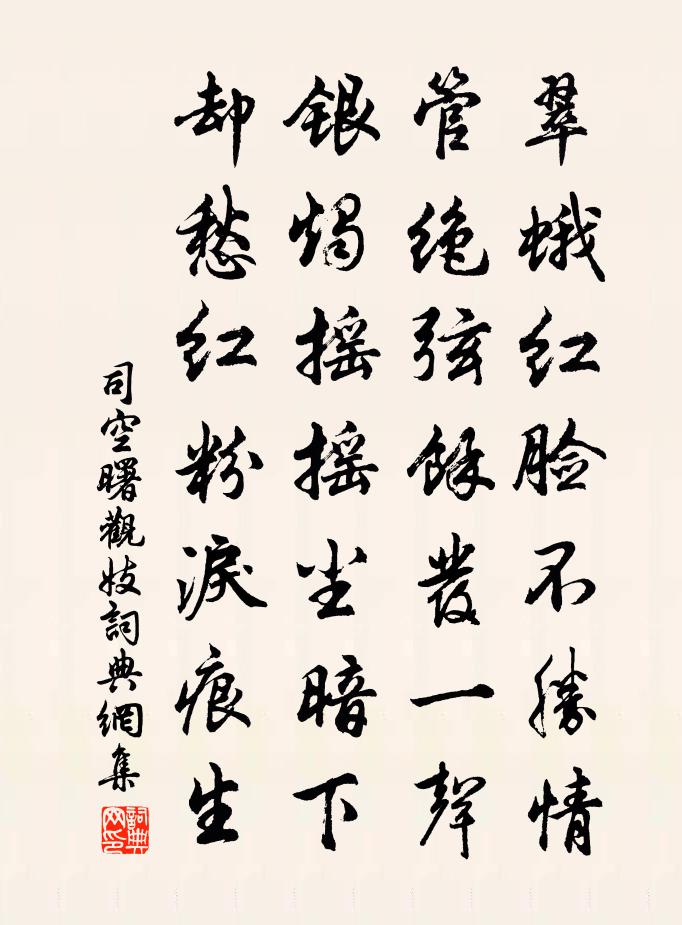 翠蛾红脸不勝情
管绝弦餘發一聲
银烛摇摇尘暗下
却愁红粉淚痕生
司空曙觀妓詞典網集
詞典網印